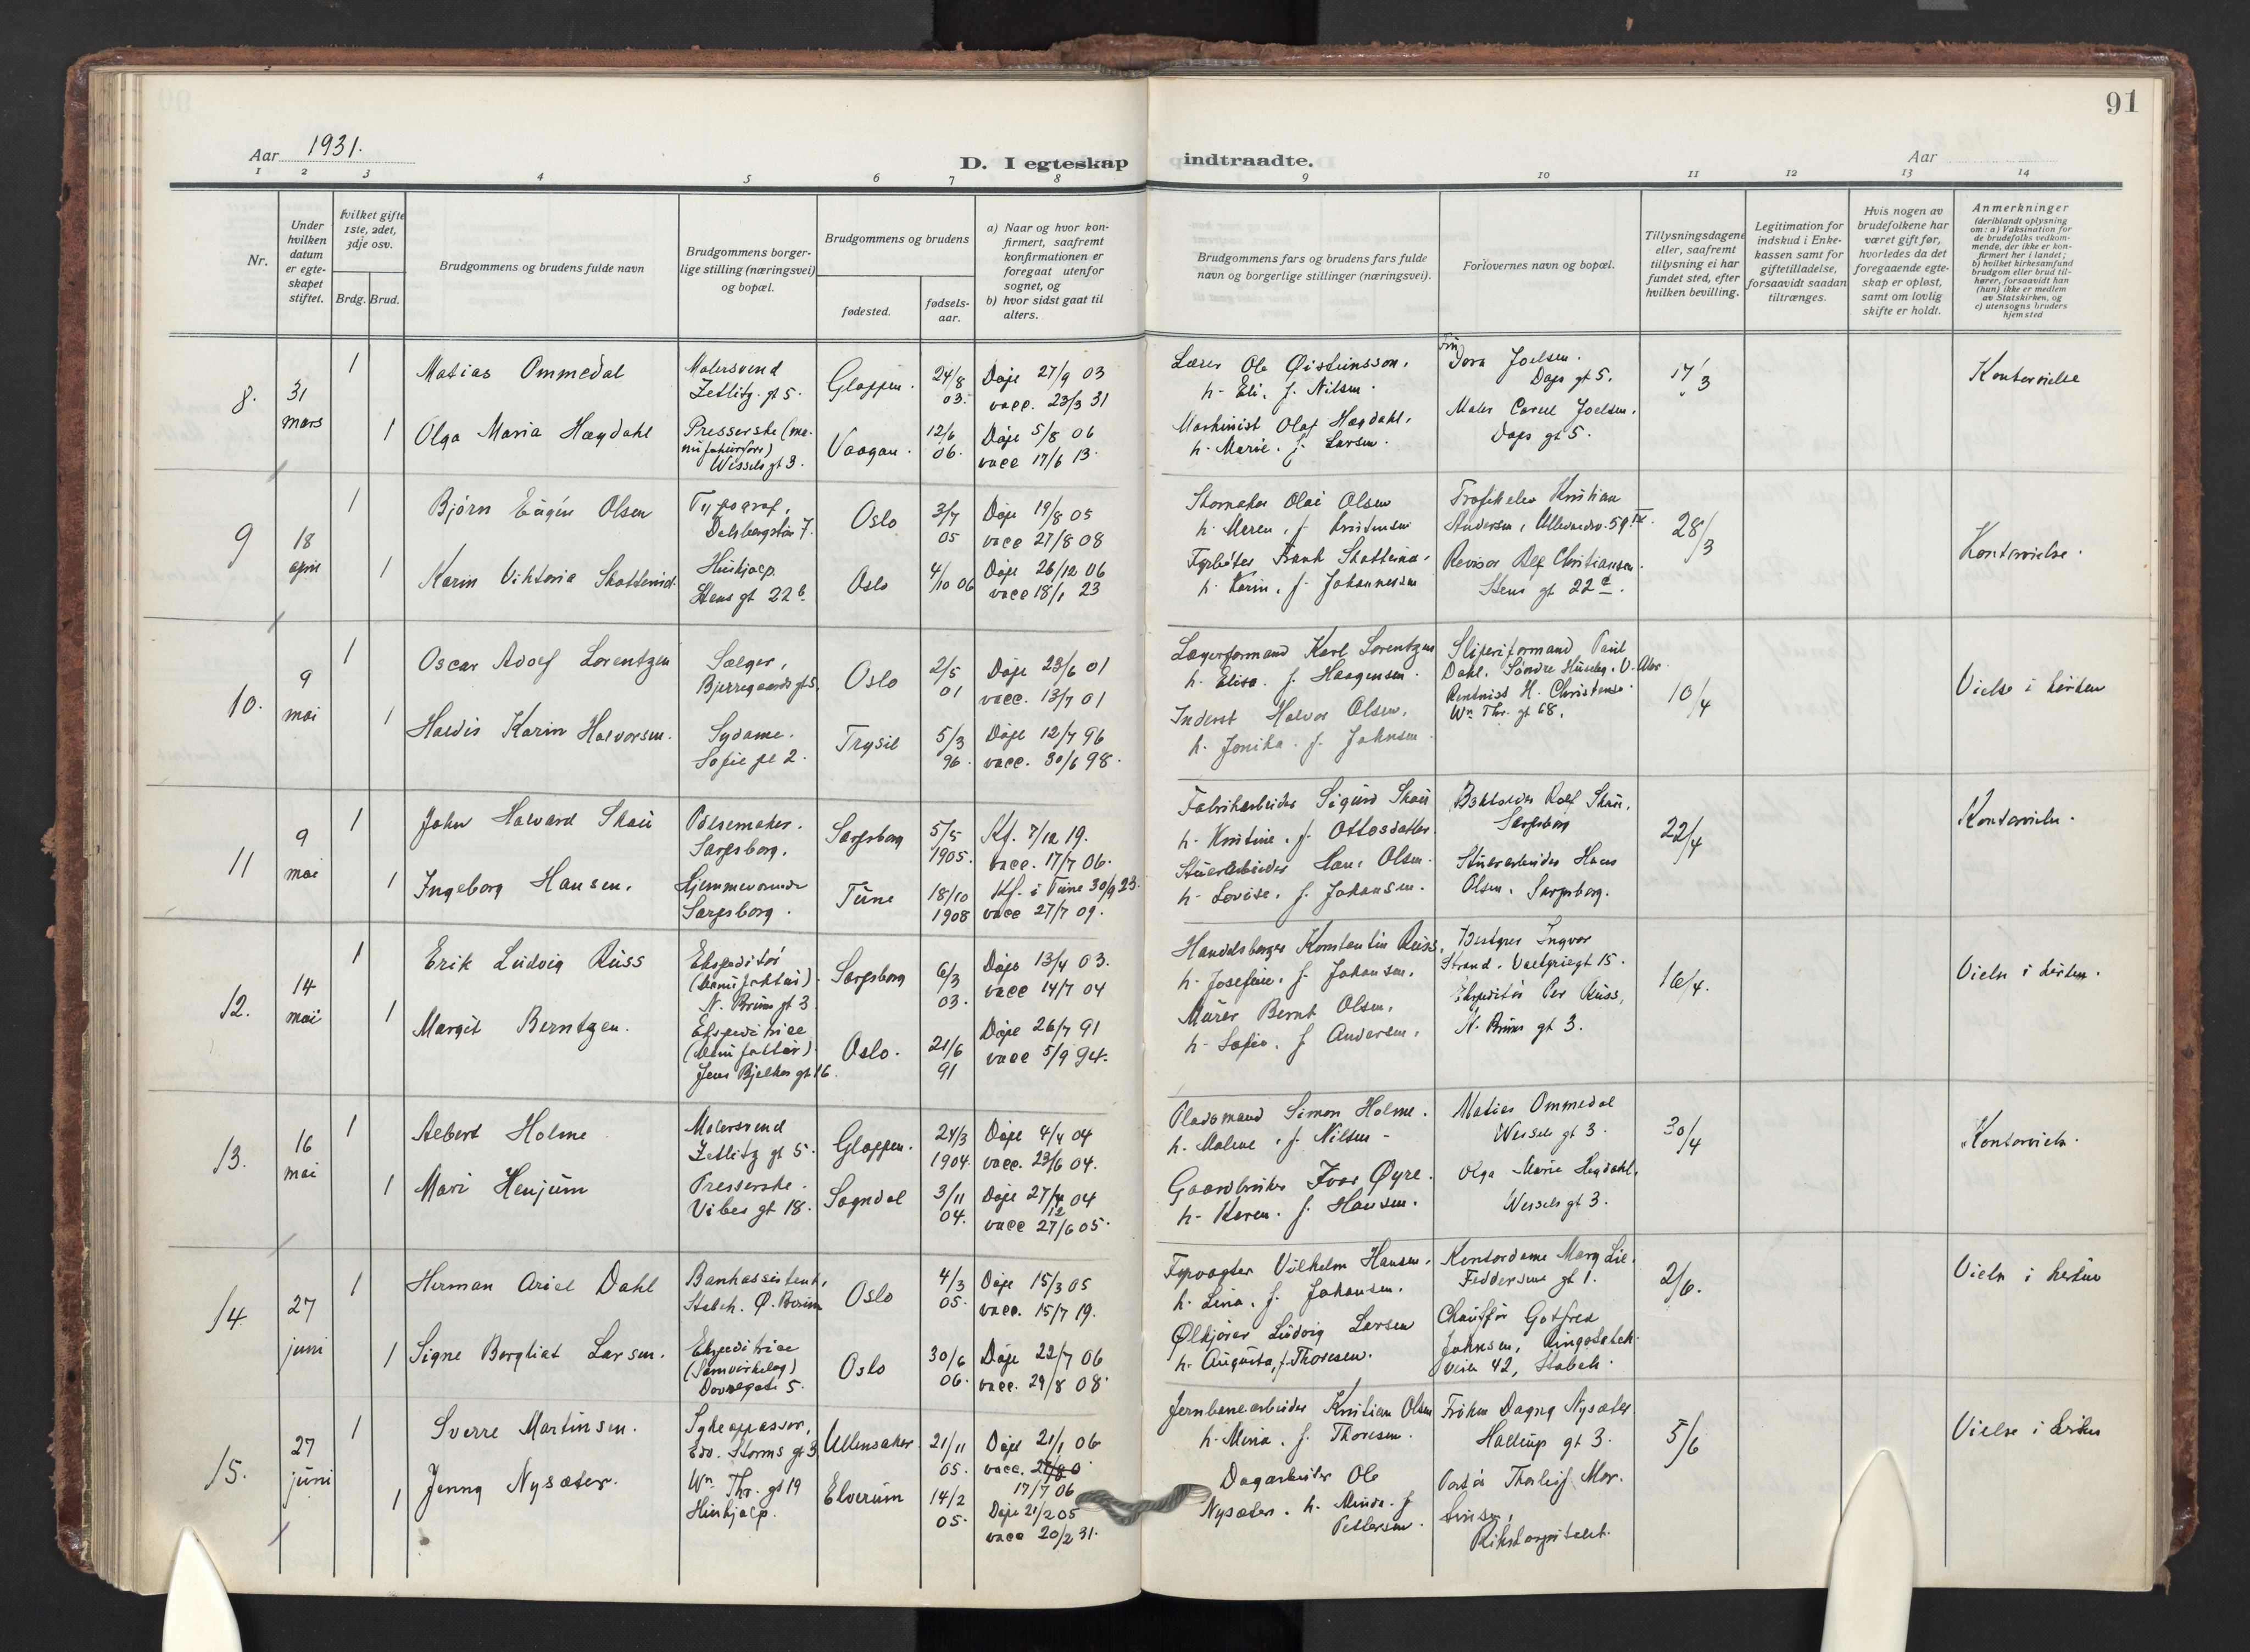 91
Aar 1931.
D. I egteskap indtraadte.
Aar
1 2 3 4 5 6 7 8 9 10 11 12 13 14
Nr.
Under
hvilken
datum
er egte-
skapet
stiftet.
Hvilket gifte
1ste, 2det,
3dje osv.
Brdg. Brud.
Brudgommens og brudens fulde navn
Brudgommens borger-
lige stilling (næringsvei)
og bopæl.
Brudgommens og brudens
fødested.
fødsels-
aar.
a) Naar og hvor kon-
firmert, saafremt
konfirmationen er
foregaat utenfor
sognet, og
b) hvor sidst gaat til
alters.
Brudgommens fars og brudens fars fulde
navn og borgerlige stillinger (næringsvei).
Forlovernes navn og bopæl.
Tillysningsdagene
eller, saafremt
tillysning ei har
fundet sted, efter
hvilken bevilling.
Legitimation for
indskud i Enke-
kassen samt for
giftetilladelse,
forsaavidt saadan
tiltrænges.
Hvis nogen av
brudefolkene har
været gift før,
hvorledes da det
foregaaende egte-
skap er opløst,
samt om lovlig
skifte er holdt.
Anmerkninger
(deriblandt oplysning
om: a) Vaksination for
de brudefolks vedkom-
mende, der ikke er kon-
firmert her i landet;
b) hvilket kirkesamfund
brudgom eller brud til-
hører, forsaavidt han
(hun) ikke er medlem
av Statskirken, og
c) utensogns bruders
hjemsted
8.
31
mars
1
Matias Ommedal
Malersvend
Zetlitz. gt 5.
Gloppen.
24/8
03.
Døpt 27/9 03
vacc. 23/3 31
Lærer Ole Øisteinsson.
h. Eli. f. Nilsen.
Fru
Dora Joelsen.
Daps gt 5.
17/3
Kontorvielse
1
Olga Maria Hægdahl
Presserske (ma-
nufakturforr)
Wessels gt 3.
Vaagan.
12/6
06.
Døpt 5/8 06
vacc 17/6 13.
Maskinist Olaf Hægdahl.
h. Marie. f. Larsen.
Maler Joelsen.
Daps gt 5.
9
18
april
1
Bjørn Eugén Olsen
Typograf.
7.
Oslo
3/7
05
Døpt 19/8 05
vacc 27/8 08
Olai Olsen
h. Maren, f. Kristensen
Trafikelev Kristian
Andersen, Ullevaalsv. 59 IV.
28/3
Kontorvielse.
1
Karin Viktoria
Hushjælp.
Stens gt 22 b.
Oslo
4/10 06
Døpt 26/12 06
vacc 18/1 23
Fyrbøter Frank
h. Karin, f. Johannessen
Revisor Alf Christiansen.
Stens gt 22
10.
9
mai
1
Oscar Adolf Lorentzen
Sælger,
Bjerregaards gt 5.
Oslo
2/5
01
Døpt 23/6 01
vacc. 13/7 01
Lagerformand Karl Lorentzen
h. Elisa. f. Haagensen.
Sliperiformand Paul
Dahl. Søndre Huseby. V. Aker.
10/4
Vielse i kirken
1
Haldis Karin Halvorsen.
Sydame.
Sofie pl 2.
Trysil
5/3
96.
Døpt 12/7 96
vacc. 30/6 98.
Inderst Halvor Olsen.
h. Jonika. f. Johnsen
Rentnist H. Christensen.
Wm Thr. gt 68.
11
9
mai
1
John Halvard Skau
Pølsemaker.
Sarpsborg.
Sarpsborg
5/5
1905.
Kf. 7/12 19.
vacc. 17/7 06.
Fabrikarbeider Sigurd Skau
h. Kristine. f. Ottosdatter.
Rolf Skau,
Sarpsborg
22/4
Kontorvielse.
1
Ingeborg Hansen.
Hjemmeværende
Sarpsborg.
Tune
18/10
1908
Kf. i Tune 30/9 23.
vacc 27/7 09.
Stuerarbeider Hans Olsen.
h. Lovise. f. Johansen.
Stuerarbeider Hans
Olsen. Sarpsborg.
12.
14
mai
1
Erik Ludvig Russ
Ekspeditør
(Manufaktur).
N. Bruns gt 3.
Sarpsborg
6/3
03.
Døpt 13/4 03.
vacc 14/7 04
Handelsborger Konstantin Russ.
h. Josefine. f. Johansen.
Bestyrer Ingvar
Strand. Valkyriegt 15.
16/4.
Vielse i kirken.
1
Margit Berntzen.
Ekspeditrice
(Manufaktur).
Jens Bjelkes gt 16.
Oslo.
21/6
91
Døpt 26/7 91
vacc 5/9 94.
Murer Bernt Olsen,
h. Sofie. f. Andersen.
Ekspeditør Per Russ,
N. Bruns gt 3.
13.
16
mai
1
Albert Holme
Malersvend
Zetlitz gt 5.
Gloppen.
24/3
1904.
Døpt 4/4 04
vacc. 23/6 04.
Pladsmand Simon Holme.
h. Malene. f. Nilsen -
Matias Ommedal
Wessels gt 3.
30/4
Kontorvielse.
1
Mari Henjum
Presserske.
Vibes gt 18.
Sogndal
3/11
04.
Døpt 27/12 04
vacc 27/6 05.
Gaardbruker Ivar Øyre.
h. Karen. f. Hansen.
Olga Marie Hægdahl,
Wessels gt 3.
14
27
juni
1
Herman Ariel Dahl
Bankassistent,
Stabek. Ø. Bærum
Oslo
4/3
05.
Døpt 15/3 05
vacc. 15/7 19.
Fyrvogter Vilhelm Hansen.
h. Lina. f. Johansen.
Kontordame Mary Lie.
Feddersens gt 1.
2/6.
Vielse i kirken
1
Signe Bergliat Larsen.
Ekspeditrice
(Samvirkelag)
Dovregate 5.
Oslo
30/6
06.
Døpt 22/7 06
vacc. 29/8 08.
Ølkjører Ludvig Larsen
h. Augusta, f. Thoresen.
Chauffør Gotfred
Johnsen, Ringstabek-
veien 42, Stabek.
15.
27
juni
1
Sverre Martinsen.
Sykepasser,
Edv. Storms gt 3
Ullensaker
21/11
05.
Døpt 21/1 06
vacc.
17/7 06
Jernbanearbeider Kristian Olsen
h. Mina. f. Thoresen.
Frøken Dagny Nysæter
Hallings gt 3.
5/6
Vielse i kirken
1
Jenny Nysæter.
Wm Thr. gt 19
Hushjælp.
Elverum
14/2
05.
Døpt 21/2 05
vacc 20/2 31.
Dagarbeider Ole
Nysæter. h. Minda. f.
Pettersen.
Portør Thorleif Mar-
tinsen,
Rikshospitalet.